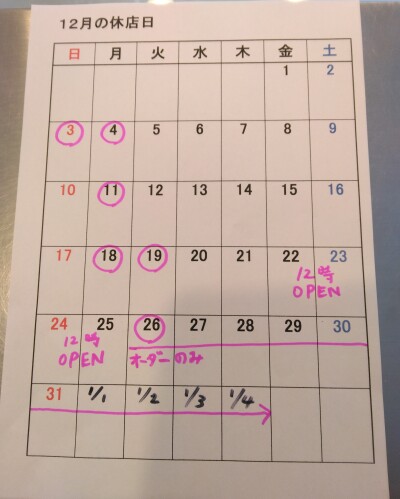 12月の休店日
日 月 火 水 木 金 土
1 2
3 4 5 6 7 8 9
10 11 12 13 14 15 16
17 18 19 20 21 22 23
12時
OPEN
24 25 26 27 28 29 30
12時
OPEN オーダーのみ
31 1/1 1/2 1/3 1/4